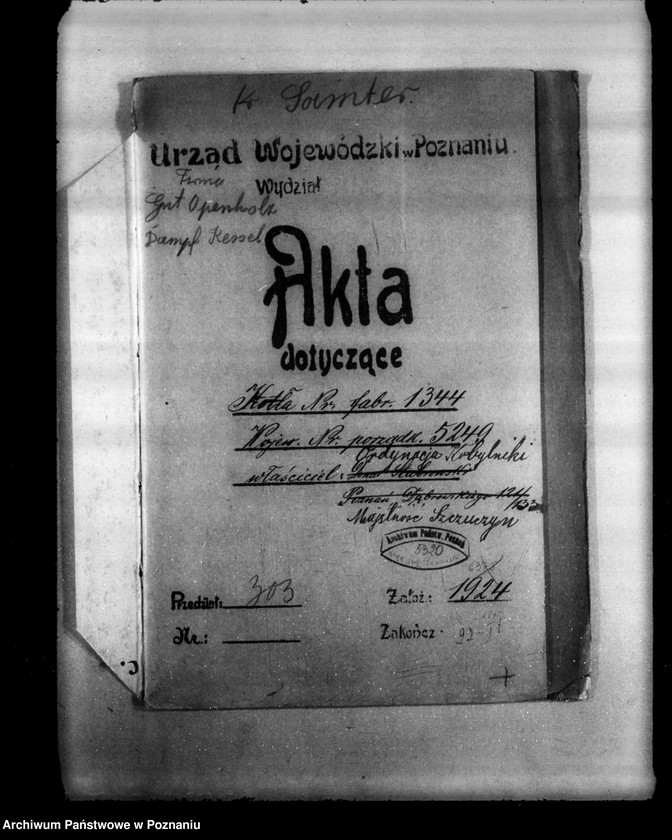 Kr Samter.
Urząd Wojewódzki w Poznaniu.
Firma
Wydział
Gut Openholz
Dampf Kessel
Akta
dotyczące
Kotła Nr. fabr. 1344
Wojew. Nr. porządk. 5249
Ordynacja Kobylniki
właściciel:
Poznań, Dąbrowskiego 124/
Majętność Szczuczyn
Archiwum Państw. Poznań
5320
Przedział: 303
Założ.: 1924
Nr.:
Zakończ.
C.
Archiwum Państwowe w Poznaniu